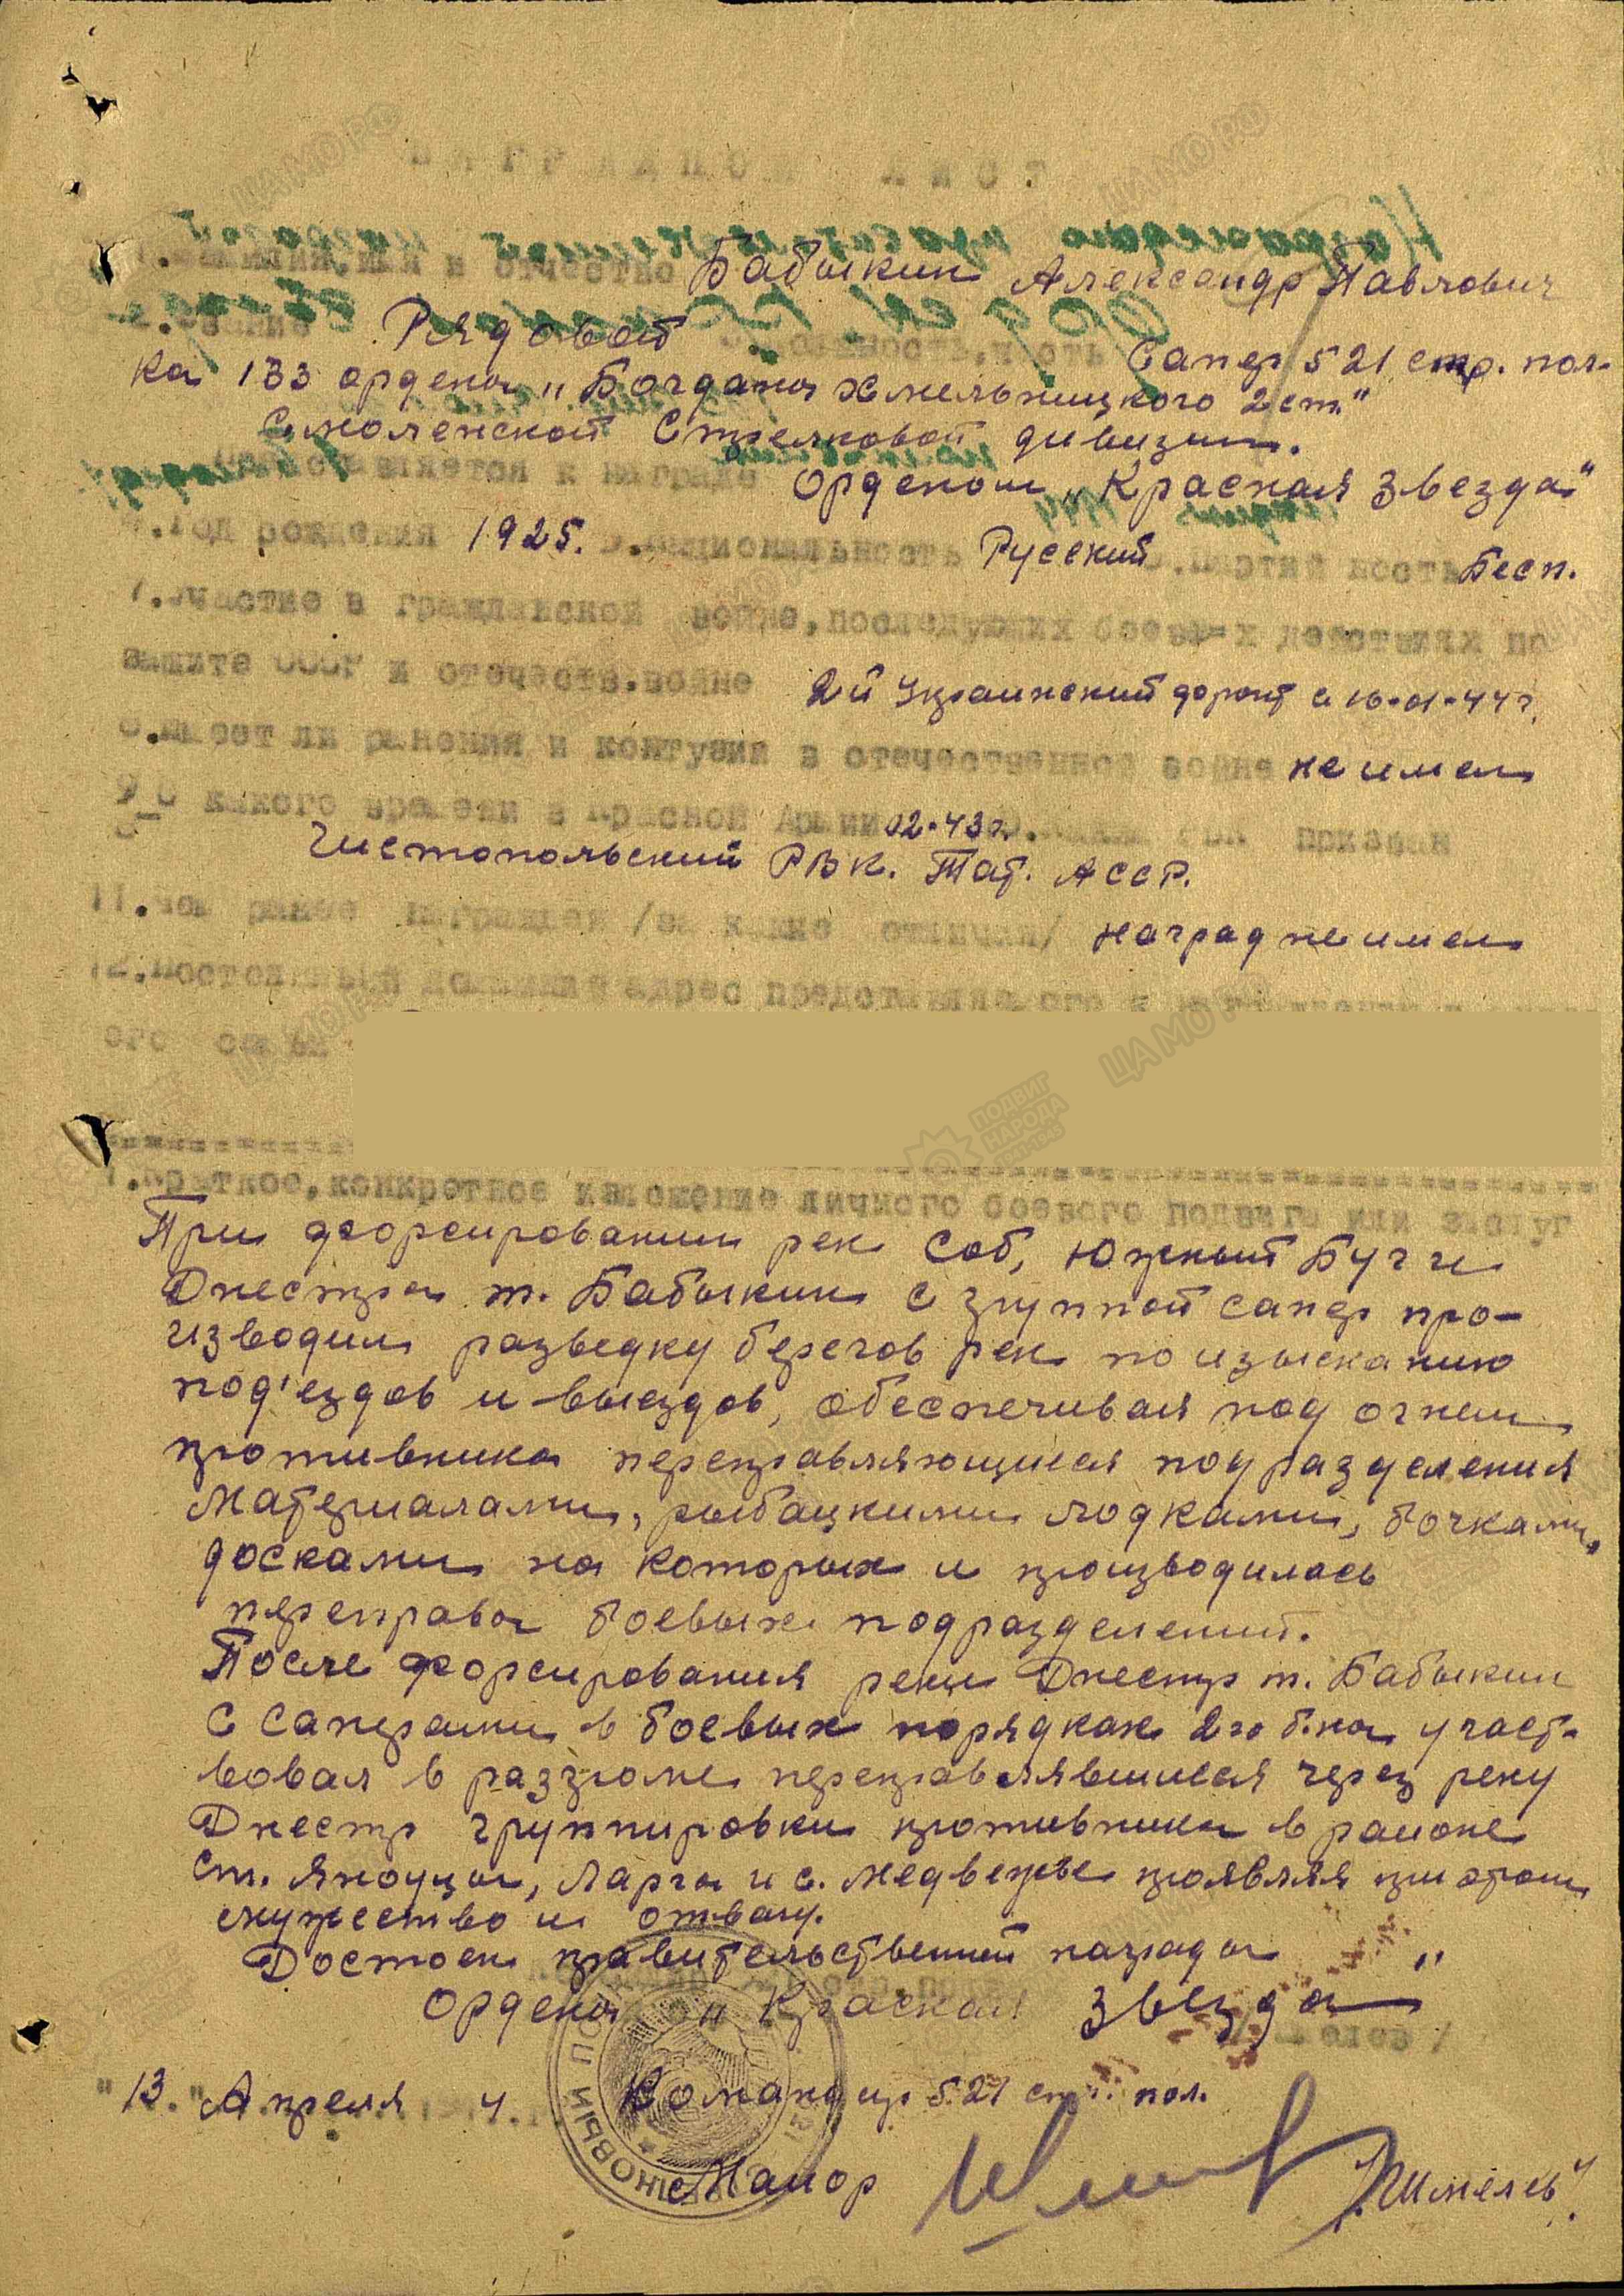 НАГРАДНОЙ ЛИСТ
1.Фамилия, имя и отчество Бабыкин Александр Павлович
2.Звание Рядовой 3.должность, часть Сапер 521 стр. пол-
ка 133 ордена „Богдана Хмельницкого 2 ст."
Смоленской Стрелковой дивизии.
Представляется к награде Орденом „Красная Звезда"
4.Год рождения 1925. 5.Национальность Русский 6.Партийность Бесп.
7.Участие в гражданской войне,последующих боевых действиях по
защите СССР и отечеств.войне 2й Украинский фронт с 16-01-44 г.
8.Имеет ли ранения и контузии в отечественной войне не имел
9.С какого времени в Красной Армии 02-43 г. 10.Каким РВК призван
Чистопольский РВК. Тат. АССР.
11.Чем ранее награжден /за какие отличия/ наград не имел
12.Постоянный домашний адрес представляемого к награждению и адрес
его семьи
ПОДВИГ НАРОДА
1.Краткое,конкретное изложение личного боевого подвига или заслуг
При форсировании рек Соб, Южный Буг и
Днестра т. Бабыкин с группой сапер про-
изводил разведку берегов рек по изысканию
под'ездов и выездов, обеспечивая под огнем
противника переправляющиеся подразделения
материалами, рыбацкими лодками, бочками,
досками на которых и производилась
переправа боевых подразделений.
После форсирования реки Днестр т. Бабыкин
с саперами в боевых порядках 2го б-на участ-
вовал в разгроме переправлявшиеся через реку
Днестр группировки противника в районе
ст. Яноуцы, Ларга и с. Медвежье проявляя при этом
мужество и отвагу.
Достоен правительственной награды
Ордена „Красная Звезда"
"13." Апреля 4 Командир 521 стр. пол.
Майор /Шмелев/